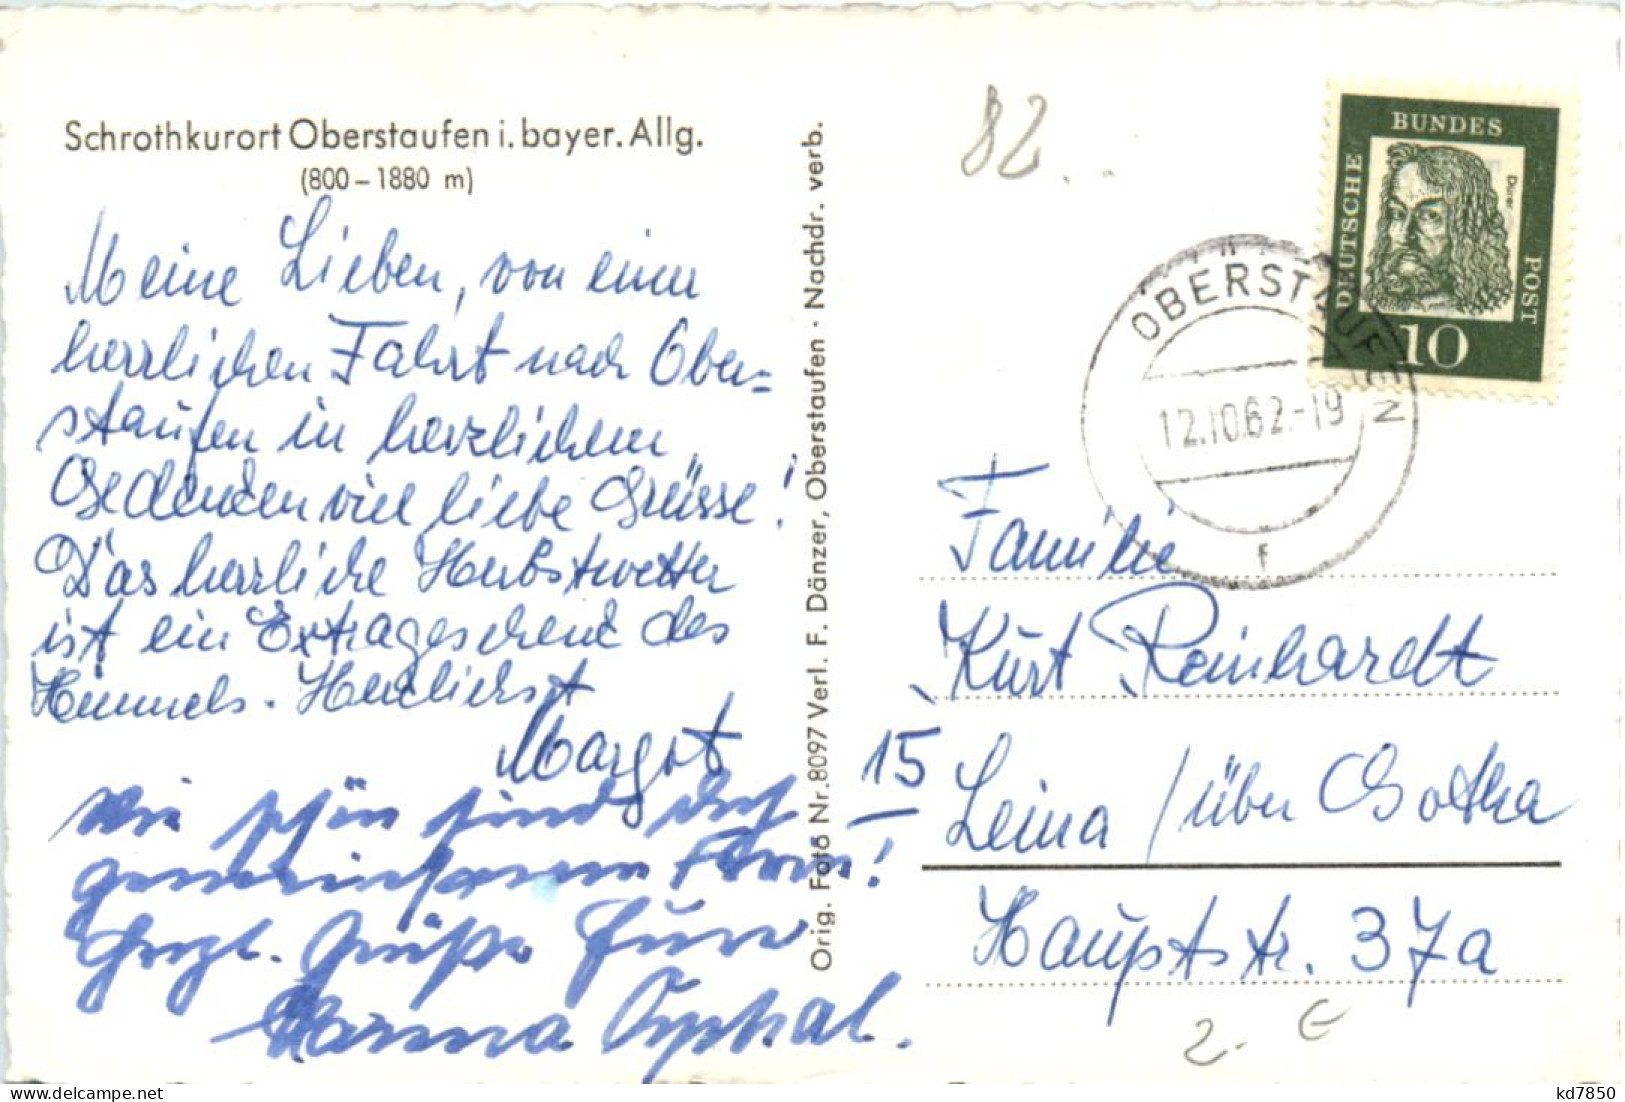 Schrothkurort Oberstaufen i. bayer. Allg.
(800 – 1880 m)
Meine Lieben, von einer
herrlichen Fahrt nach Ober=
staufen in herzlichem
Gedenken viel liebe Grüsse!
Das herrliche Herbstwetter
ist ein Extrageschenk des
Himmels. Herzlichst
Margot
Wie schön sind doch
gemeinsame
Herzl. Grüße
Hanna
Orig. Foto Nr. 8097 Verl. F. Dänzer, Oberstaufen · Nachdr. verb.
82..
DEUTSCHE
BUNDES
POST
Dürer
10
OBERSTAUFEN
12.10.62.-19
F
Familie
Kurt Reinhardt
15
Leina / über Gotha
Hauptstr. 37a
2.- €
kd7850